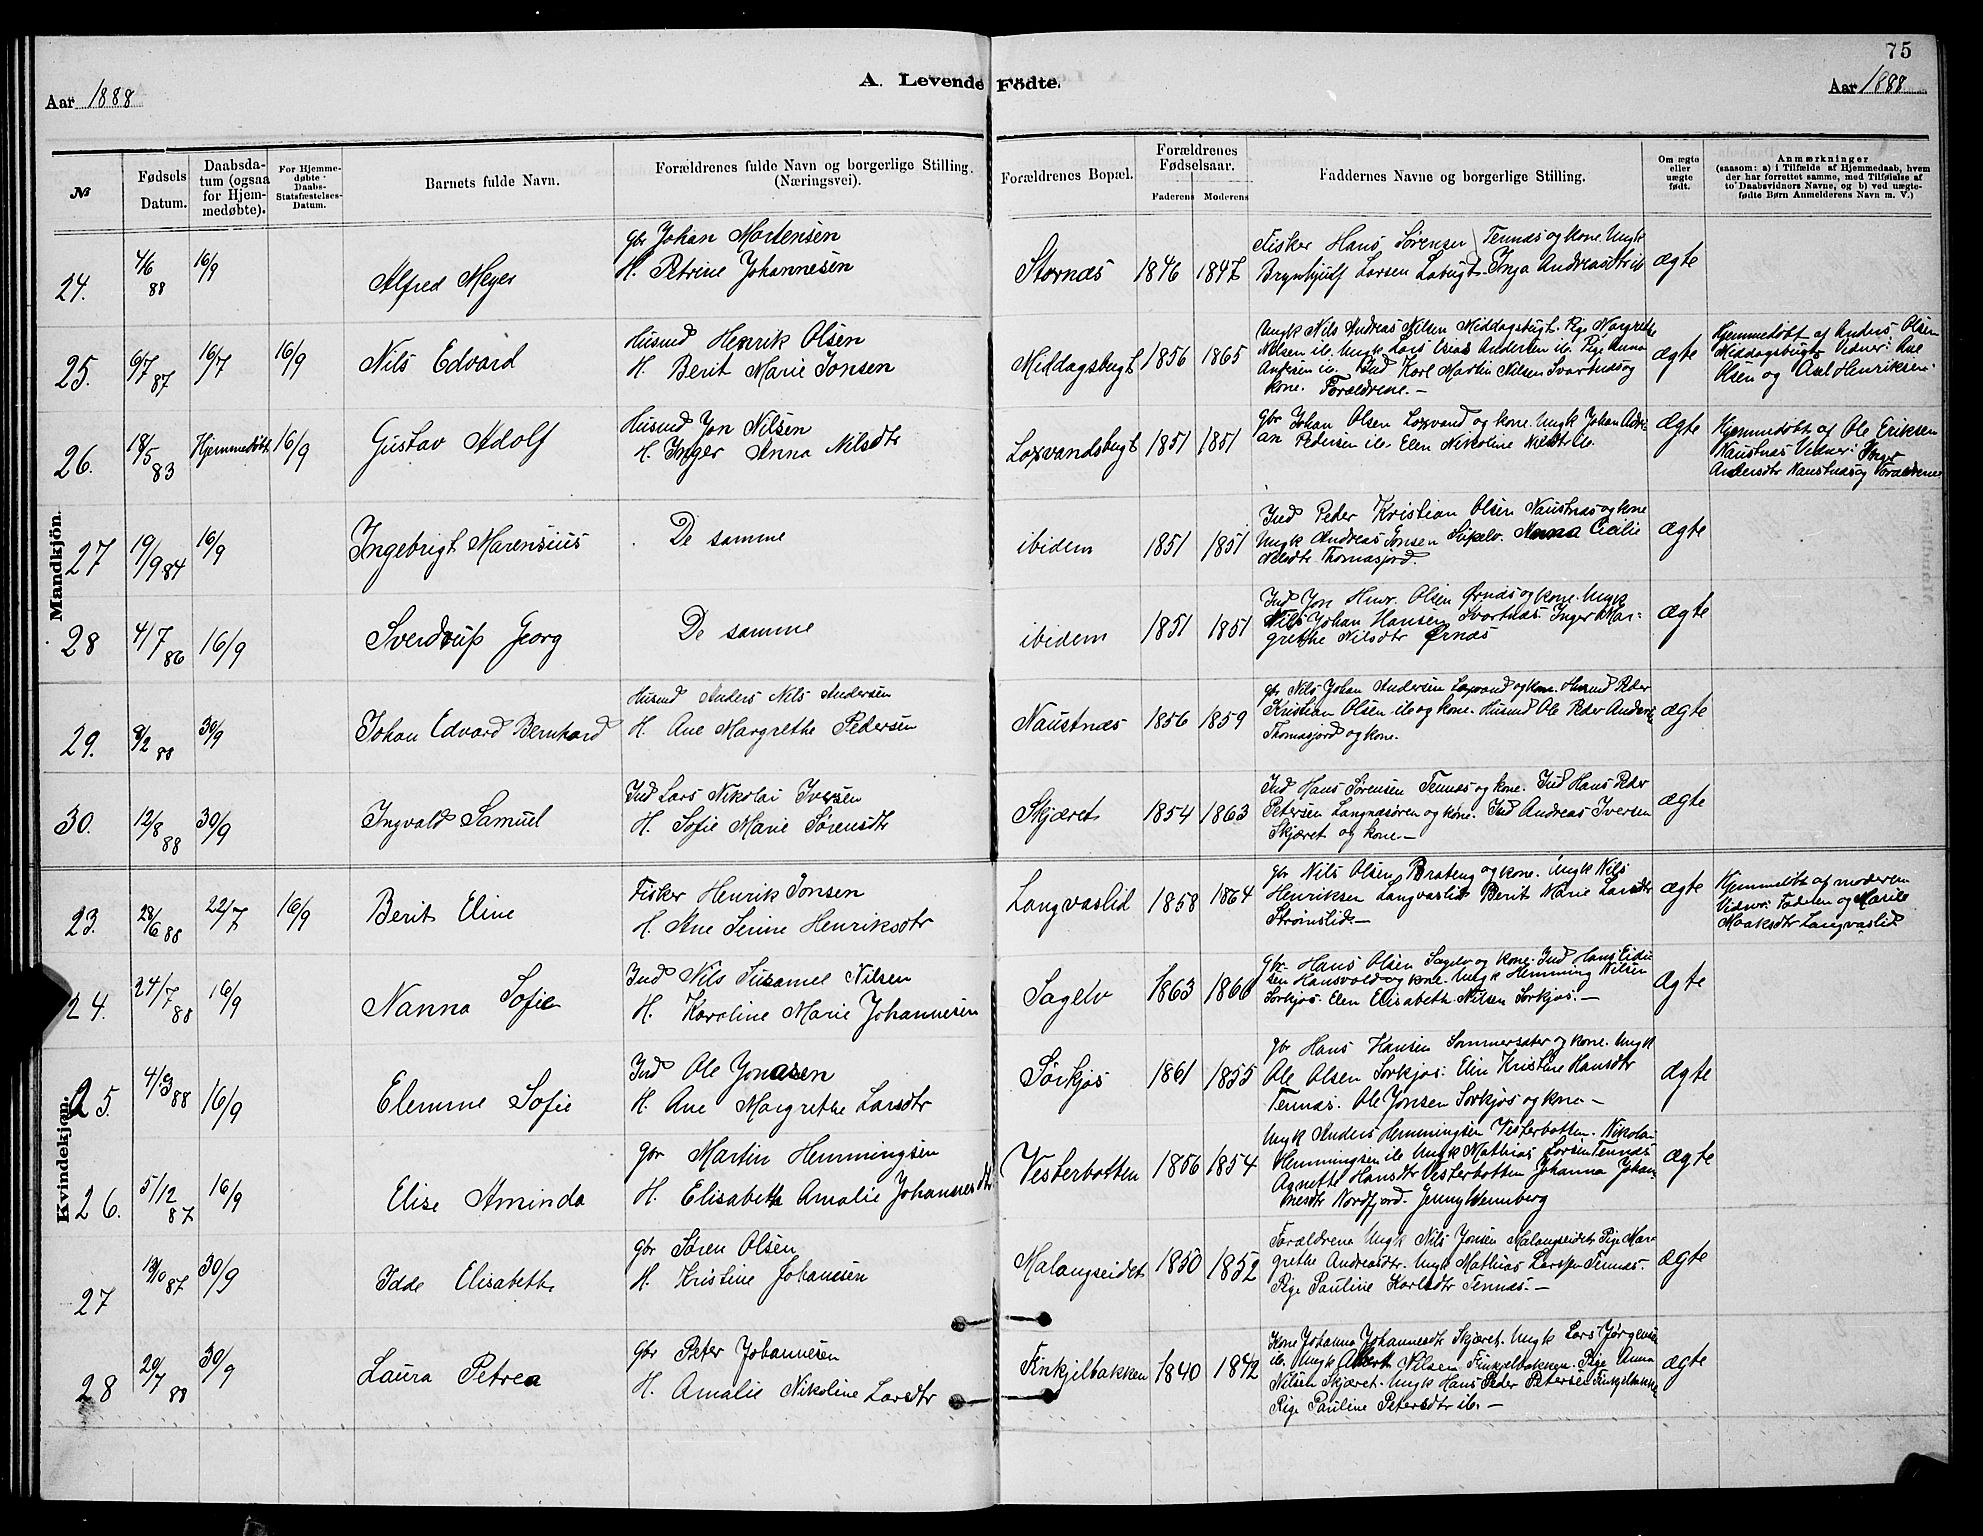 75
A. Levende Födte.
Aar 1888
Aar 1888
№
Fødsels Datum.
Daabsda-
tum (ogsaa
for Hjem-
medøbte).
For Hjemme-
døbte
Daabs-
Statsfæstelses-
Datum.
Barnets fulde Navn.
Forældrenes fulde Navn og borgerlige Stilling.
(Næringsvei).
Forældrenes Bopæl.
Forældrenes
Fødselsaar.
Faderens Moderens
Faddernes Navne og borgerlige Stilling.
Om ægte
eller
uægte
født.
Anmærkninger
(saasom: a) i Tilfælde af Hjemmedaab, hvem
der har forrettet samme, med Tilføielse af
to Daabsvidners Navne, og b) ved uægte-
fødte Børn Anmelderens Navn m. V.)
Mandkjön.
24. 4/6 88 16/9 Alfred Meyer
Gbr Johan Mortensen
H. Petrine Johannesen
Stornæs 1846 1847
Fisker Hans Sørensen Tennæs og kone. Ungk
Brynhjulf Larsen Løbugt. Inga Andreasdtr ib
ægte
25. 6/7 87 16/7 16/9 Nils Edvard
Husmd Henrik Olsen
H. Berit Marie Jonsen
Middagsbugt 1856 1865
Ungk Nils Andreas Nilsen Middagsbugt. Pige Margrethe
Nilsen ib. Ungk Lars Andersen ib. Pige Anna
Andersen ib. Ind Karl Martin Nilsen Svartnæs og
kone. Forældrene.-
ægte
Hjemmedøbt af Anders Olsen
Middagsbugt Vidner: Ane
Olsen og Axel Henriksen.
26. 18/5 83 Hjemmedøbt 16/9 Gustav Adolf
Husmd Jon Nilsen
H. Inger Anna Nilsdtr
Laxvandsbugt 1851 1851
Gbr Johan Olsen Laxvand og kone. Ungk Johan Adri-
an Pedersen ib. Elen Nikoline Nilsdtr ib.
ægte
Hjemmedøbt af Ole Eriksen
Naustnæs Vidner: Inger
Andersdtr Naustnæs og Forældrene
27 19/9 84 16/9 Ingebrigt Marensius
De samme
ibidem 1851 1851
Ind Peder Kristian Olsen Naustnæs og kone
Ungk Andreas Jonsen Sikelv. Anna Cecilie
Nilsdtr Thomasjord.
ægte
28 4/7 86 16/9 Sverdrup Georg
De samme
ibidem 1851 1851
Ind Jon Henr. Olsen Ørnæs og kone. Ungk
Nils Johan Hansen Svartnæs. Inger Mar-
grethe Nilsdtr Ørnæs
ægte
29. 8/2 88 30/9 Johan Edvard Bernhard
Husmd Anders Nils Andersen
H. Ane Margrethe Pedersen
Naustnæs 1856 1859
Gbr Nils Johan Andersen Laxvand og kone. Husmd Peder
Kristian Olsen ib og kone. Husmd Ole Peder Anders.
Thomasjord og kone.
ægte
30. 12/8 88 30/9 Ingvald Samuel
Ind Lars Nikolai Iversen
H. Sofie Marie Sørensdtr
Skjæret 1854 1863
Ind Hans Sørensen Tennæs og kone. Ind Hans Peder
Petersen Langnæsøren og kone. Ind Andreas Iversen
Skjæret og kone.-
ægte
Kvindekjøn.
23. 28/6 88 22/7 16/9 Berit Eline
Fisker Henrik Jonsen
H. Ane Serine Henriksdtr
Langvaslid 1858 1864
Gbr Nils Olsen Brateng og kone. Ungk Nils
Henriksen Langvaslid Berit Marie Larsdtr
Strømslid.-
ægte
Hjemmedøbt af moderen
Vidner: Faderen og Marie
Maaksdtr Langvaslid
24. 24/7 88 16/9 Nanna Sofie
Ind Nils Susamel Nilsen
H. Karoline Marie Johannesen
Sagelv 1863 1866
Gbr. Hans Olsen Sagelv og kone. Ind Hans Eidi-
sen Hansvold og kone. Ungk Hemming Nilsen
Sørkjos. Elen Elisabeth Nilsen Sørkjos.-
Ægte
25. 4/3 88 16/9 Elemme Sofie
Ind Ole Jonasen
H. Ane Margrethe Larsdtr
Sørkjos 1861 1855
Gbr Hans Hansen Sommersæter og kone. Ungk
Ole Olsen Sørkjos. Elin Kristine Hansdtr
Tennæs. Ole Jonsen Sørkjos og kone.-
ægte
26. 5/12 87 16/9 Elise Aminda
Gbr Martin Hemmingsen
H. Elisabeth Amalie Johannesdtr
Vesterbotten 1856 1854
Ungk Anders Hemmingsen Vesterbotten. Nikolai
Hemmingsen ib Ungk Mathias Larsen Tennæs
Agnethe Hansdtr Vesterbotten Johanna Johan-
nesdtr Nordfjord. Jenny Wennberg
ægte
27 13/10 87 30/9 Idde Elisabeth
Gbr Søren Olsen
H. Kristine Johanesen
Malangseidet 1850 1852
Forældrene Ungk Nils Jonsen Malangseidet Pige Mar-
grethe Andreasdtr. Ungk Mathias Larsen Tennæs.
Pige Pauline Karlsdtr Tennæs.-
ægte
28 20/7 88 30/9 Laura Petrea
Gbr Peter Johannesen
H. Amalie Nikoline Larsdtr
Finkjilbakken 1840 1842
Kone Johanna Johannesdtr Skjæret. Ungk Lars Jørgensen
ib. Ungk Albert Nilsen Finkjelbakken. Pige Anna
Nilsen Skjæret. Ungk Hans Peder Petersen Finkjelbakken
Pige Pauline Petersdtr ib.-
ægte